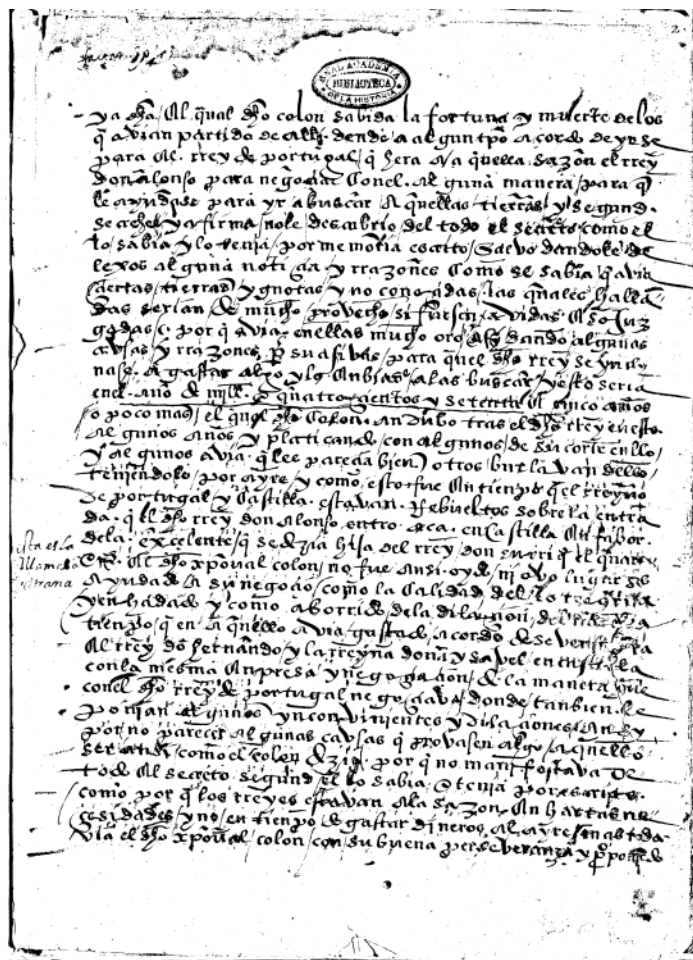 2
REAL ACADEMIA
BIBLIOTECA
DE LA HISTORIA
ya dha / Al qual dho colon sabida la fortuna y muerte delos
q avian partido de alli dende a algun tpo acordo de yrse
para Al rrey de portugal / q hera a a quella sazon el rrey
don alonso para negociar Con el Al guna manera / para q
le ayudase para yr a buscar a quellas tierras y segund
se cree y afirma / no le descubrio del todo el secreto como el
lo sabia y lo tenia / por memoria escrito / Salvo dandole de
lexos alguna noticia y rrazones Como se sabia q avia
ciertas tierras ygnotas y no conocidas / las quales halla
das serian de mucho provecho si fuesen avidas
por q avia en ellas mucho oro dandο algunas
cavsas y rrazones suasivas / para quel dho rrey se yncli
nase A gastar algo y las Anbiase a las buscar / y esto seria
enel Año de mill e quatro cientos y setenta e cinco años
o poco mas / el qual dho Colon Andubo tras el dho rrey en esto
Al gunos Años y platicando con algunos de su corte en llo /
y al gunos avia q les parecia bien / otros burlavan dello
teniendolo por ayre y como esto fue An tienpo q el rreyno
de portugal y Castilla estavan Rebueltos sobre la entra
da q el dho rrey don Alonso entro aca en Castilla An fabor
dela excelente / q se dezia hija del rrey don enrriq el quarto
esta es la
llamada
Al dho xpoval colon no fue Ansi oydo ni ovo lugar de
Ayudarla su negocio / como la Calidad del lo requeria
y enhadado y como aborrido dela dilacion del
tienpo / q en a quello avia gastado acordo de se venir para
Al rrey do hernando y la rreyna dona ysavel en castilla
con la mesma Anpresa y negociacion de la manera que
conel dho rrey de portugal negociava / donde tanbien le
ponian al gunos ynconvinientes y dilaciones An sy
por no parecer al gunas cavsas q provasen algo a quello
ser ansi como el colon dezia por q no manifestava de
todo Al secreto segund el lo sabia o tenia por escrito
como por q los rreyes estavan Ala sazon An hartas ne
cesidades y no en tienpo de gastar dineros Al ayre / toda
via el dho xpoval colon / con su buena perseveranza y